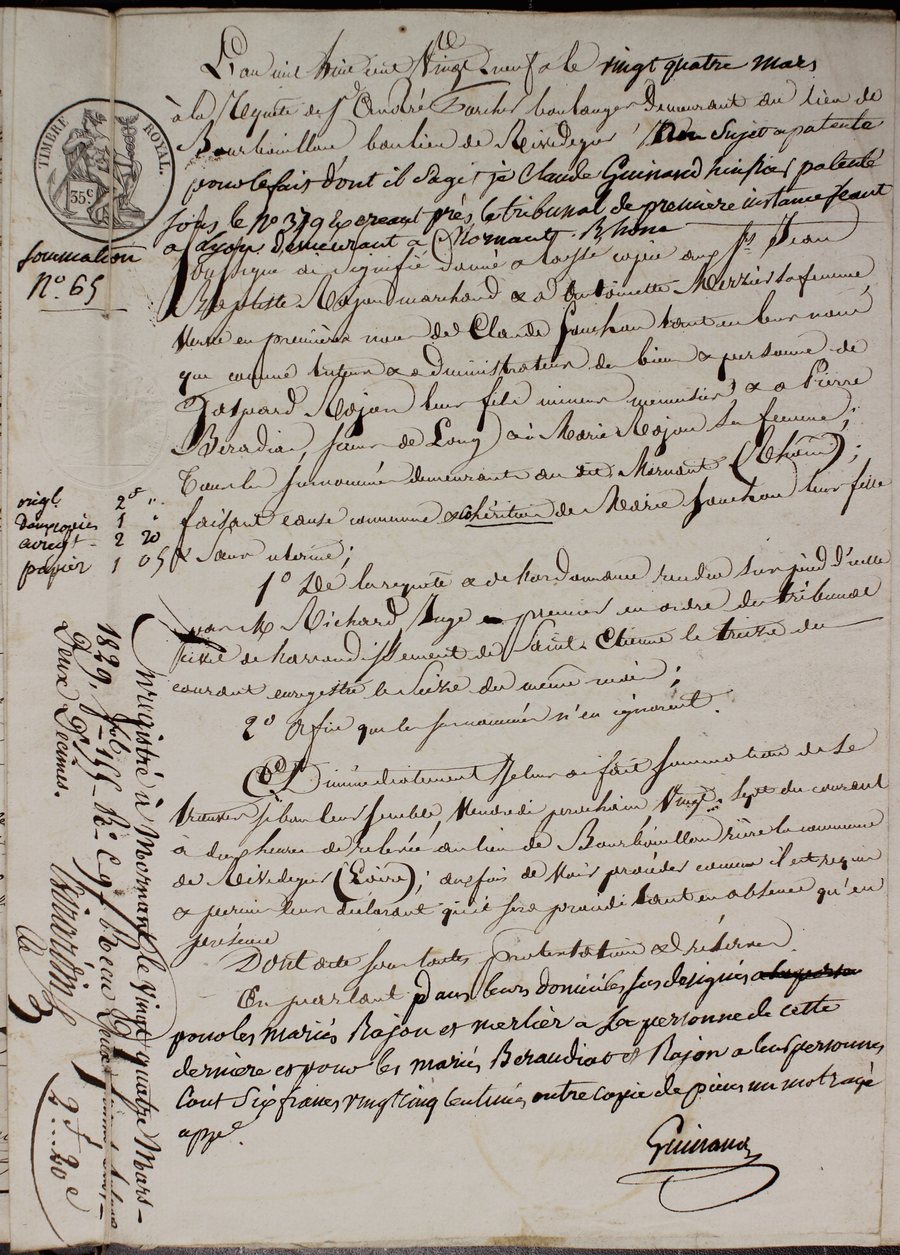 L'an mil huit cent vingt-neuf & le vingt quatre mars
à la Requête de Sr. André Darcher boulanger demeurant au lieu de
Bourbouillon banlieu de Rivedegier, non Sujet a patente
pour le fait dont il S'agit je Claude Guinand huissier patenté
sous le No. 379 Exerçant près le tribunal de première instance Seant
a Lyon demeurant a Mornant Rhône
TIMBRE ROYAL.
35c
Sommation
No. 65
Soussigné ai signifié donné & laissé copie aux Srs. Jean
Baptiste Rajon marchand & a Antoinette Merlier sa femme
veuve en premières noces de Claude tant en leur nom
que comme tuteur & administrateur de biens & personne de
Gaspard Rajon leur fils mineur menuisier, & a Pierre
de Long & à Marie Rajon Sa femme;
Tous les surnommés demeurant au dit Mornant (Rhône);
faisant cause commune & cohéritiers de Marie leur fille
& Sœur uterine;
origl. 2f "
deux copies 1 "
2 20
papier 1 05
1o De la requête & de l'ordonnance rendue Sur pied d'icelle
par M. Richard Juge en premier en ordre du tribunal
civil de l'arrondissement de Saint-Etienne le treize du
courant enregistré le Seize du même mois;
2o Afin que les surnommés n'en ignorent.
Et D'immédiatement Je leur ai fait Sommation de se
trouver si bon leur semble, Vendredi prochain Vingt-Sept du courant
à dix heures de relevée au lieu de Bourbouillon rière la commune
de Rivedegier (Loire); aux fins de Voir procéder comme il est requis
& permis leur déclarant qu'il sera procédé tant en absence qu'en
présence
Dont acte sous toutes protestations & réserves.
En parlant dans leurs domiciles sus designés
pour les mariés Rajon et merlier a la personne de cette
dernière et pour les mariés et Rajon a leurs personnes
Cout Six francs vingt cinq centimes outre copie de pièces un mot rayé
Guinand
Enregistré à Mornant le vingt quatre Mars
1829. fo. 155 Ro. C. 9 Reçu Deux
Deux Décimes.
2f..20c